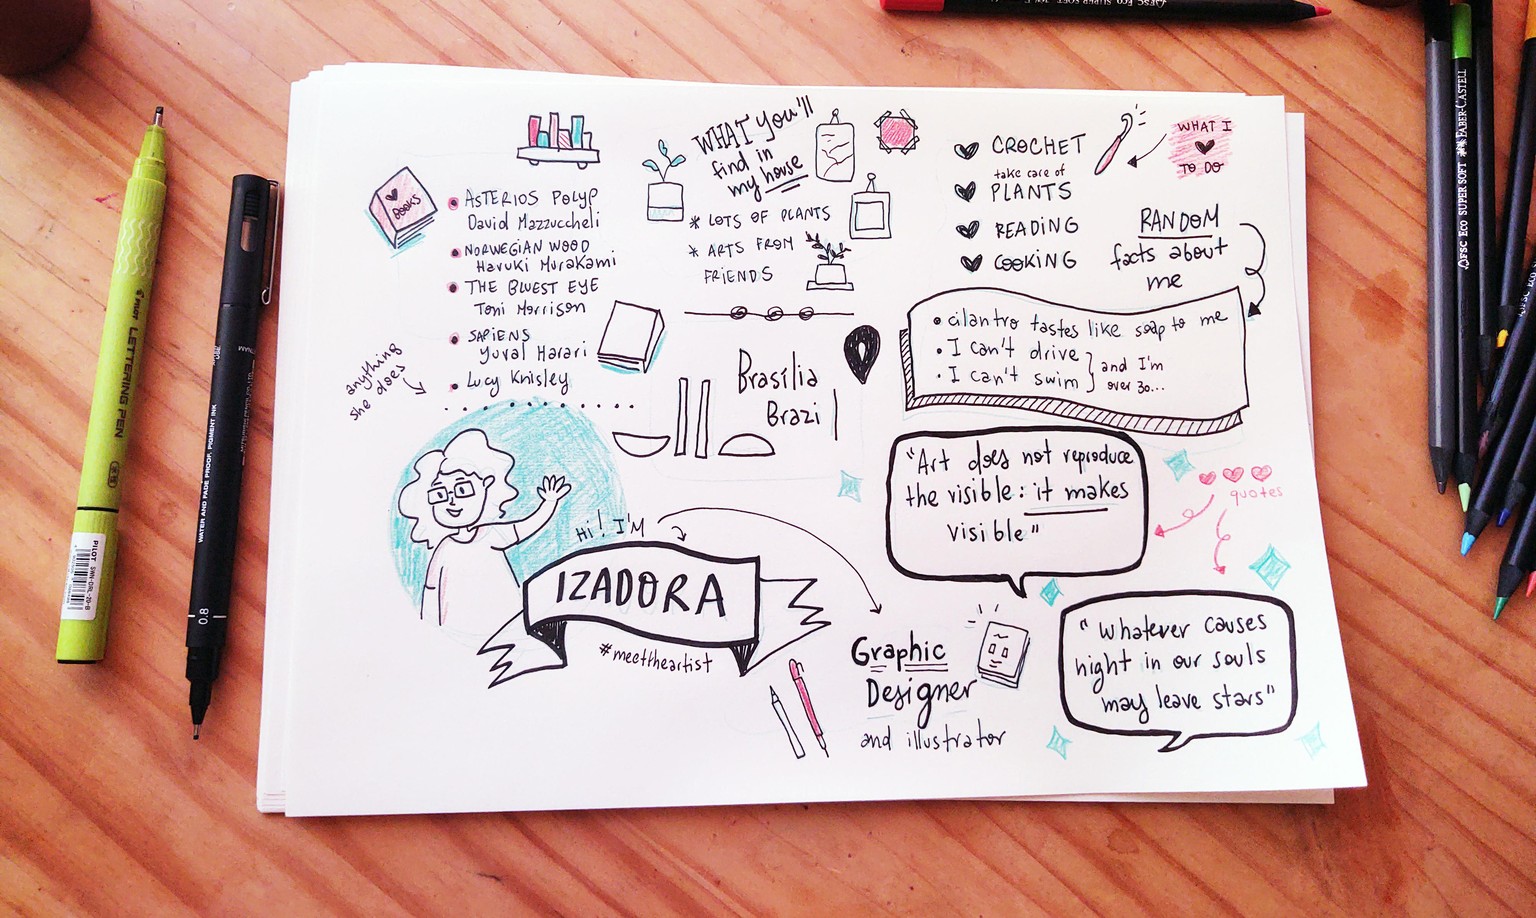 BOOKS
ASTERIOS POLYP
David Mazzuccheli
NORWEGIAN WOOD
Haruki Murakami
THE BLUEST EYE
Toni Morrison
SAPIENS
Yuval Harari
Lucy Knisley
anything
she does
WHAT You'll
find in
my house
* LOTS OF PLANTS
* ARTS FROM
FRiENDS
CROCHET
take care of
PLANTS
READING
COOKiNG
WHAT I
TO DO
RANDOM
facts about
me
• cilantro tastes like soap to me
• I can't drive
• I can't swim
and I'm
over 30...
Brasília
Brazil
"Art does not reproduce
the visible: it makes
visible"
quotes
"Whatever causes
night in our souls
may leave stars"
Hi! I'M
IZADORA
#meettheartist
Graphic
Designer
and illustrator
PILOT LETTERING PEN
PILOT
SWN-DRL-20-B
WATER AND FADE PROOF, PIGMENT INK
0.8
FSC ECO SUPER SOFT FABER-CASTELL